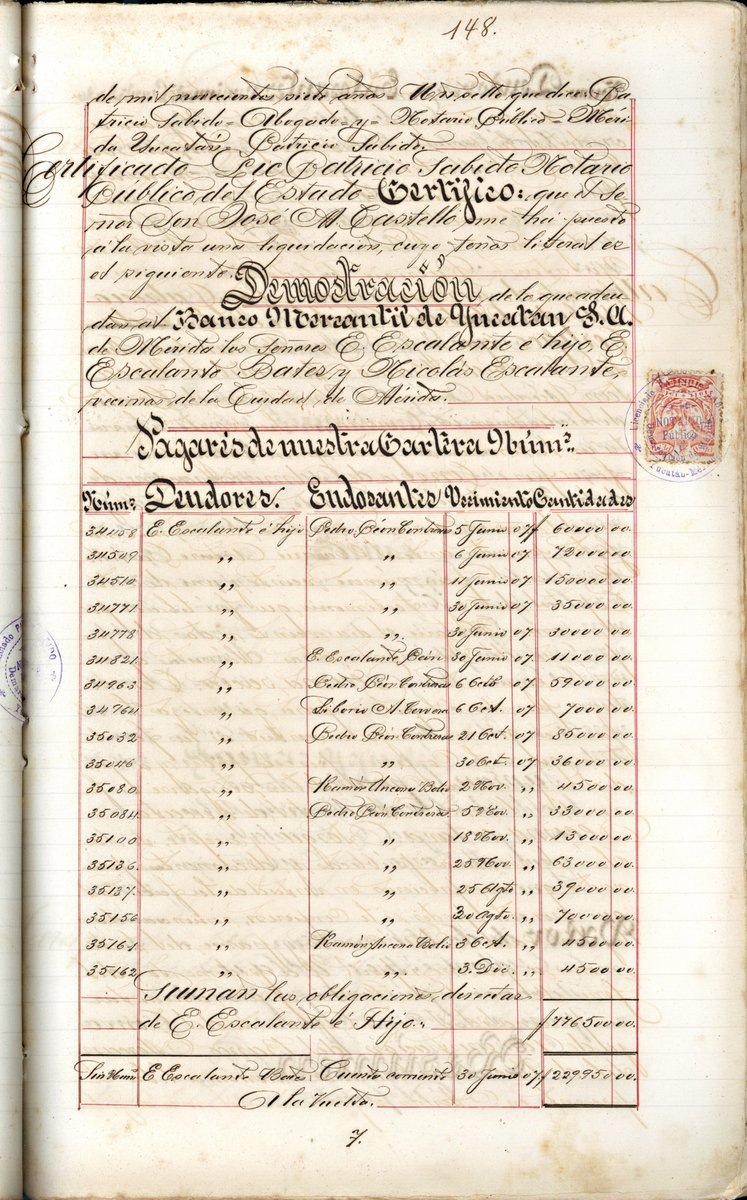 148.
de mil novecientos siete años Un sello que dice: Pa
tricio Sabido= Abogado= y= Notario Publico= Meri
da Yucatán= Patricio Sabido.
Certificado Lic Patricio Sabido Notario
Publico del Estado Certifico: que el Se
ñor Don José M. Castelló, me ha puesto
á la vista una liquidación, cuyo tenor literal es
el siguiente.
Demostración de lo que adeu
dan al Banco Mercantil de Yucatán S. A.
de Mérida los Señores E. Escalante é hijo, E.
Escalante Bates y Nicolás Escalante,
vecinos de la Ciudad de Mérida.
Pagarés de nuestra Cartera Núm.
Núm. Deudores. Endosantes Vecimiento Cantidades
34458 E. Escalante é hijo Pedro Peón Contreras 5 Junio 07 $ 60000 00.
34509 " " 6 Junio 07 72000 00.
34510 " " 11 Junio 07 150000 00.
34771 " " 30 Junio 07 35000 00.
34778 " " 30 Junio 07 30000 00.
34821 " E. Escalante Peón 30 Junio 07 11000 00.
34963 " Pedro Peón Contreras 6 Oct. 07 59000 00.
34964 " Liborio A. Cervera 6 Oct. 07 7000 00.
35032 " Pedro Peón Contreras 21 Oct. 07 85000 00.
35046 " " 30 Oct. 07 36000 00.
35080 " Ramón Ancona Bolio 2 Nov. " 4500 00.
35084 " Pedro Peón Contreras 5 Nov. " 33000 00.
35100 " " 18 Nov. " 13000 00.
35136 " " 25 Nov. " 63000 00.
35137 " " 25 Agto " 39000 00.
35156 " " 30 Agto. " 70000 00.
35161 " Ramón Ancona Bolio 3 Oct. " 4500 00.
35162 " " 3. Dic. " 4500 00.
Suman las obligaciones directas
de E. Escalante é Hijo. $ 776500 00.
Sin Núm. E Escalante Bates Cuenta corriente 30 Junio 07 $ 229950 00.
A la Vuelta.
7.
Notario
Público